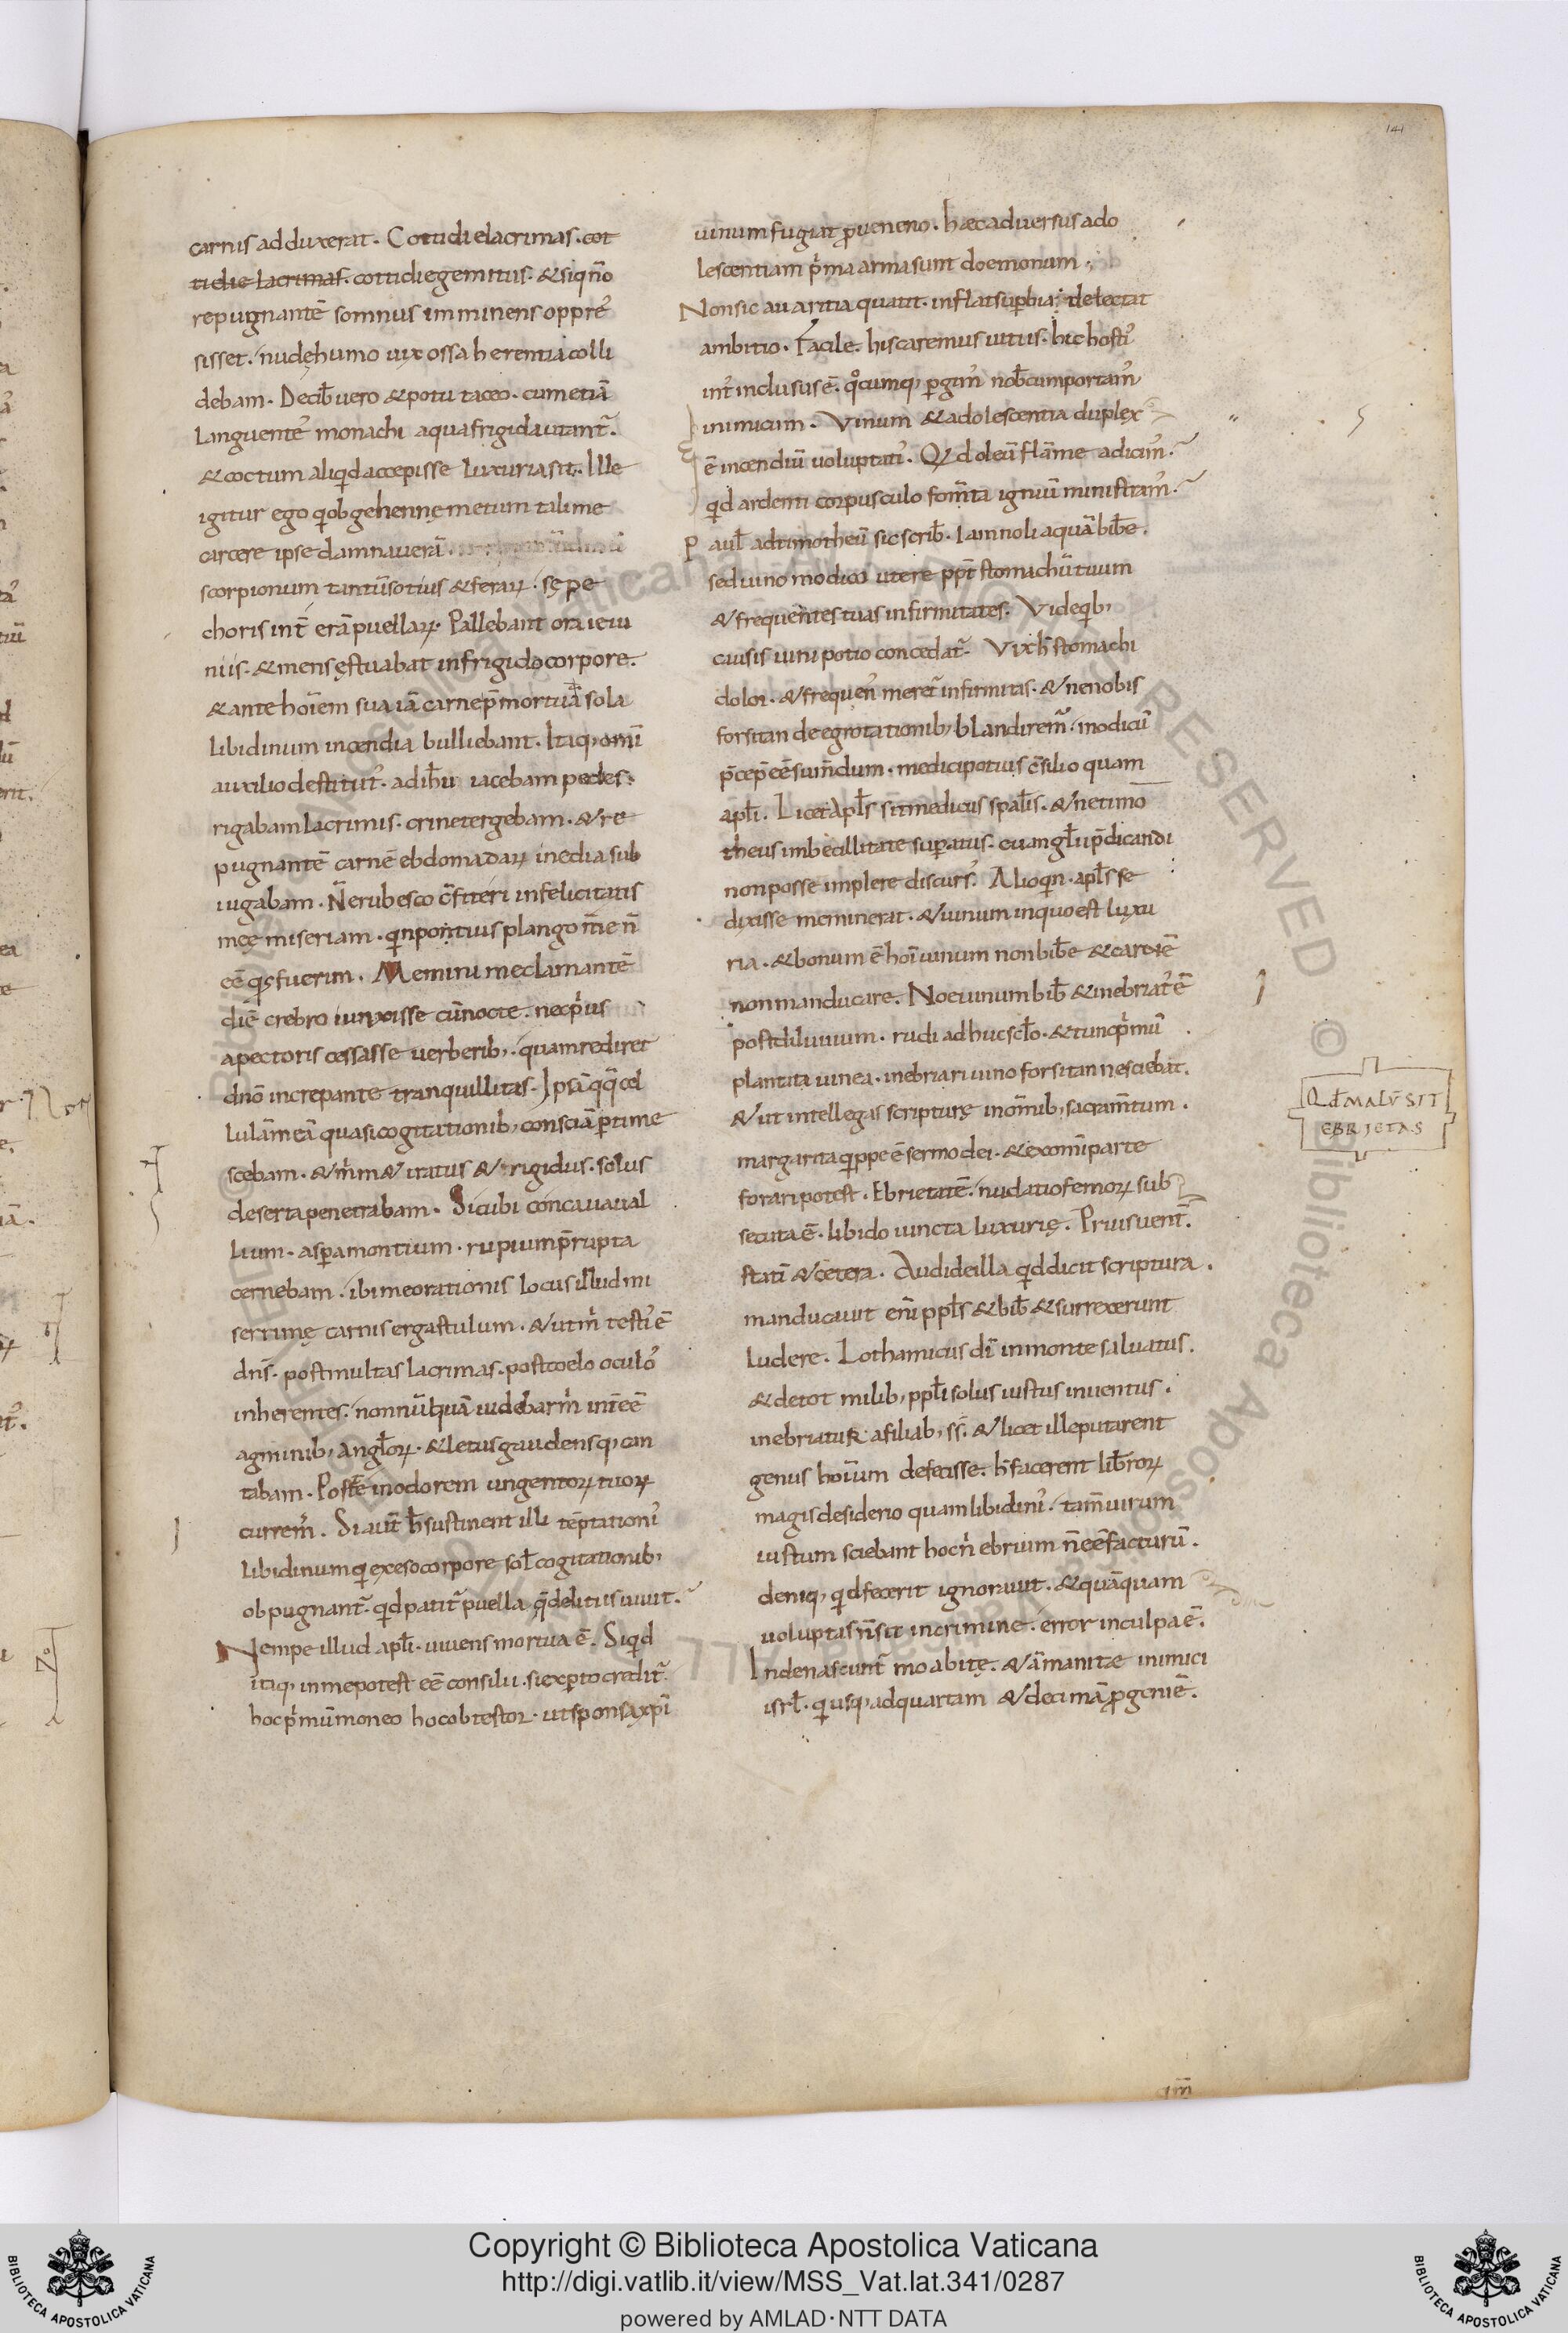 141
carnis adduxerat. Cottidie lacrimas. cot
tidie lacrimas. cottidie gemitus. & siqn̄o
repugnantē somnus imminens oppres
sisset. nudę humo uix ossa herentia colli
debam. De cib̄ uero & potu taceo. cum etiā
languentes monachi aqua frigida utant᷑.
& coctum aliqid accepisse luxuria sit. Ille
igitur ego qi ob gehennę metum tali me
carcere ipse damnauerā.
scorpionum tantū sotius & ferarꝝ. sępe
choris int̄ erā puellarꝝ. Pallebant ora ieiu
niis. & mens ęstuabat in frigido corpore.
& ante hoīem sua iā carne p̄mortuā sola
libidinum incendia bulliebant. Itaq, omī
auxilio destitut᾿. ad ih̄u iacebam pedes.
rigabam lacrimis. crine tergebam. & re
pugnantē carnē ebdomadarꝝ inedia sub
iugabam. N̄ erubesco c̄fiteri infelicitatis
meę miseriam. qin potius plango me n̄
eē qis fuerim. Memini me clamantē
diē crebro iunxisse cū nocte. nec pi᾿us
a pectoris cessasse uerberib,. quam rediret
dn̄o increpante tranquillitas. Ipsā qq̄ cel
lulā meā quasi cogitationib, consciā ptime
scebam. & m̓ m& iratus & rigidus. solus
deserta penetrabam. Sicubi concaua ual
lium. aspa montium. rupium p̄rupta
cernebam. ibi meorationis locus illud mi
serrimę carnis ergastulum. & ut m̓ testis ē
dn̄s. post multas lacrimas. post coelo oculos
inherentes. nonnūquā uidebar m̓ int̄ eē
agminib, angl̄orꝝ. & letus gaudensq, can
tabam. Post te in odorem ungentorꝝ tuorꝝ
currem᾿. Si aut̄ h̄ sustinent illi tēptationes
libidinum qi exeso corpore sol̄ cogitationib,
obpugnant᷑. qid patit᷑ puella q̄ delitiis uiuit.
Nempe illud apl̄i. uiuens mortua ē. Siqid
itaq, in me potest eē consilii. si expto credit᷑.
hoc pi᾿mū moneo hoc obtestor. ut sponsa xp̄i
uinum fugiat p ueneno. hæc aduersus ado
lescentiam pi᾿ma arma sunt doemonum.
Non sic auaritia quatit. inflat supbia. delectat
ambitio. Facile. his caremus uitiis. hic hostis
int᾿ inclusus ē. qocumq, pgim᾿ nob̄cum portam᾿
inimicum. Vinum & adolescentia duplex
ē incendiū uoluptatis. Qid oleū flāme adicim᾿.
qid ardenti corpusculo fom̄ta igniū ministram᾿.
Paul̄ ad timotheū sic scrib̄. Iam noli aquā bib̄e.
sed uino modico utere pp̄t stomachū tuum
& frequentes tuas infirmitates. Vide qib,
cau sis uini potio concedat᷑. Vix h̄ stomachi
dolor. & frequens meret᷑ infirmitas. & ne nobis
forsitan de egrotationib, blandirem᾿. modicū
p̄cep̄ eē sum̄dum. medici potius c̄silio quam
apl̄i. Licet apl̄s sit medicus spal̄is. & ne timo
theus imbecillitate supatus. euangl̄ii p̄dicandi
non posse implere discurs᾿. Alioqin. apl̄s se
dixisse meminerat. & uinum in quo est luxu
ria. & bonum ē hoi uinum non bib̄e & carnē
non manducare. Noe uinum bib̄ & inebriat᾿ ē
post diluuium. rudi adhuc scl̄o. & tunc pi᾿mū
plantata uinea. inebriari uino forsitan nesciebat.
& ut intellegas scripturę in om̄ib, sacram̄tum.
margarita qippe ē sermo dei. & ex omi parte
forari potest. Ebrietatē. nudatio femorꝝ sub
secuta ē. libido iuncta luxurię. Prius uent᷑.
stati & cetera. Audi de illa qid dicit scriptura.
manducauit eni ppl̄s & bib̄ & surrexerunt
ludere. Loth amicus di in monte saluatus.
& de tot milib, ppl̄i solus iustus inuentus.
inebriatur a filiab, ss̄. & licet ille putarent
genus hoium defecisse. h̄ facerent lib̄rorꝝ
magis desiderio quam libidinis. tam̄ uirum
iustum sciebant hoc n̓ ebrium n̄ eē facturū.
deniq, qid fecerit ignorauit. & quāquam
uoluptas n̄ sit in crimine. error in culpa ē.
Inde nascunt᷑ moabitę. & āmanitæ inimici
isrl̄. qi usq, ad quartam & decimā pgeniē.
Qd MALV̄ SIT
EBRIETAS
Copyright © Biblioteca Apostolica Vaticana
http://digi.vatlib.it/view/MSS_Vat.lat.341/0287
powered by AMLAD·NTT DATA
BIBLIOTECA APOSTOLICA VATICANA
BIBLIOTECA APOSTOLICA VATICANA